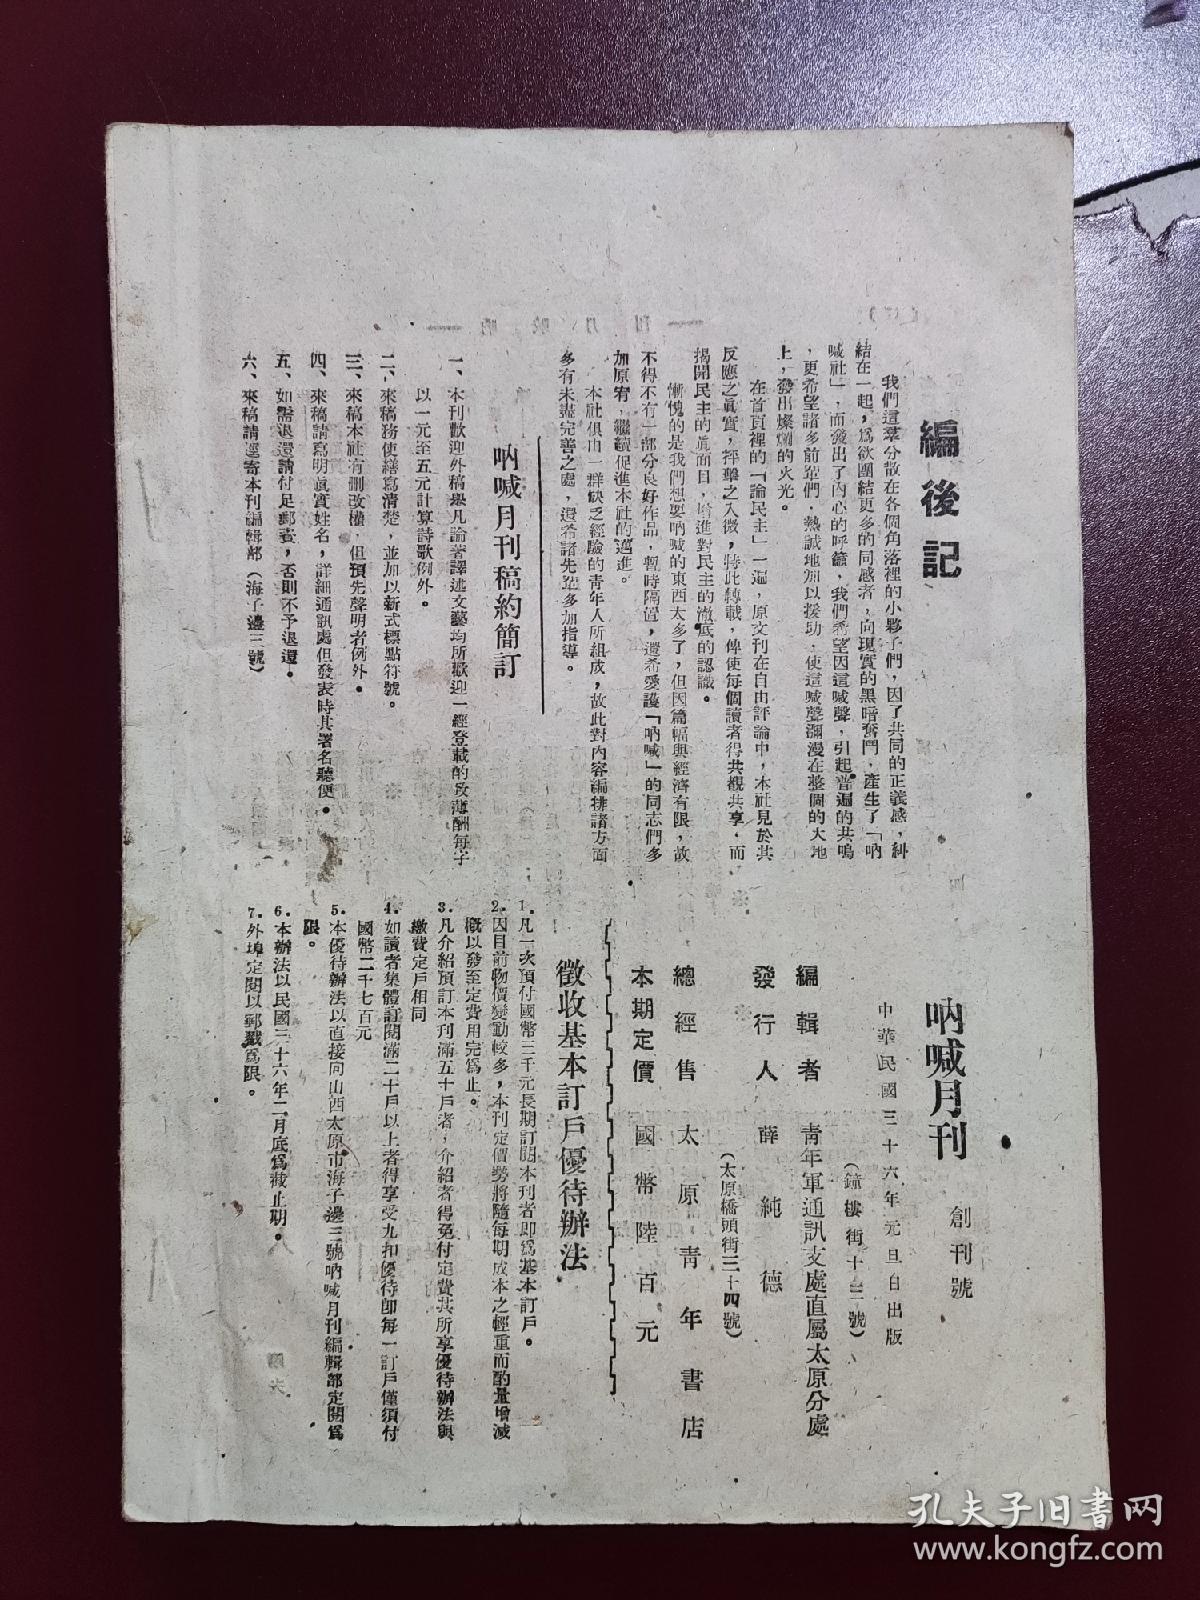 編後記
我們這羣分散在各個角落裡的小夥子們，因了共同的正義感，糾
結在一起，爲欲團結更多的同感者，向現實的黑暗奮鬥，產生了「吶
喊社」，而發出了內心的呼籲，我們希望因這喊聲，引起普遍的共鳴
，更希望諸多前輩們，熱誠地加以援助，使這喊聲瀰漫在整個的大地
上，發出燦爛的火光。
在首頁裡的「論民主」一遍，原文刊在自由評論中，本社見於其
反應之眞實，抨擊之入微，特此轉載，俾使每個讀者得共觀共享，而
揭開民主的眞面目，增進對民主的澈底的認識。
慚愧的是我們想要吶喊的東西太多了，但因篇幅與經濟有限，故
不得不有一部分良好作品，暫時隔置，還希愛護「吶喊」的同志們多
加原宥，繼續促進本社的邁進。
本社俱由一群缺乏經驗的青年人所組成，故此對內容編排諸方面
多有未盡完善之處，還希諸先進多加指導。
吶喊月刊稿約簡訂
一、本刊歡迎外稿舉凡論著譯述文藝均所歡迎一經登載的致薄酬每千字
以一元至五元計算詩歌例外。
二、來稿務使繕寫清楚，並加以新式標點符號。
三、來稿本社有刪改權，但預先聲明者例外。
四、來稿請寫明眞實姓名，詳細通訊處但發表時其署名聽便。
五、如需退還請付足郵資，否則不予退還。
六、來稿請逕寄本刊編輯部（海子邊三號）
吶喊月刊 創刊號
中華民國三十六年元旦日出版
（鐘樓街十三號）
編輯者 青年軍通訊支處直屬太原分處
發行人 薛純德
（太原橋頭街三十四號）
總經售 太原青年書店
本期定價 國幣陸百元
徵收基本訂戶優待辦法
1.凡一次預付國幣三千元長期訂閱本刊者卽爲基本訂戶。
2.因目前物價變動較多，本刊定價勢將隨每期成本之輕重而酌量增減
概以發至定費用完爲止。
3.凡介紹預訂本刊滿五十戶者，介紹者得免付定費其所享優待辦法與
繳費定戶相同
4.如讀者集體訂閱滿二十戶以上者得享受九扣優待卽每一訂戶僅須付
國幣二千七百元
5.本優待辦法以直接向山西太原市海子邊三號吶喊月刊編輯部定閱爲
限。
6.本辦法以民國三十六年二月底爲截止期。
7.外埠定閱以郵戳爲限。
孔夫子旧書网
www.kongfz.com